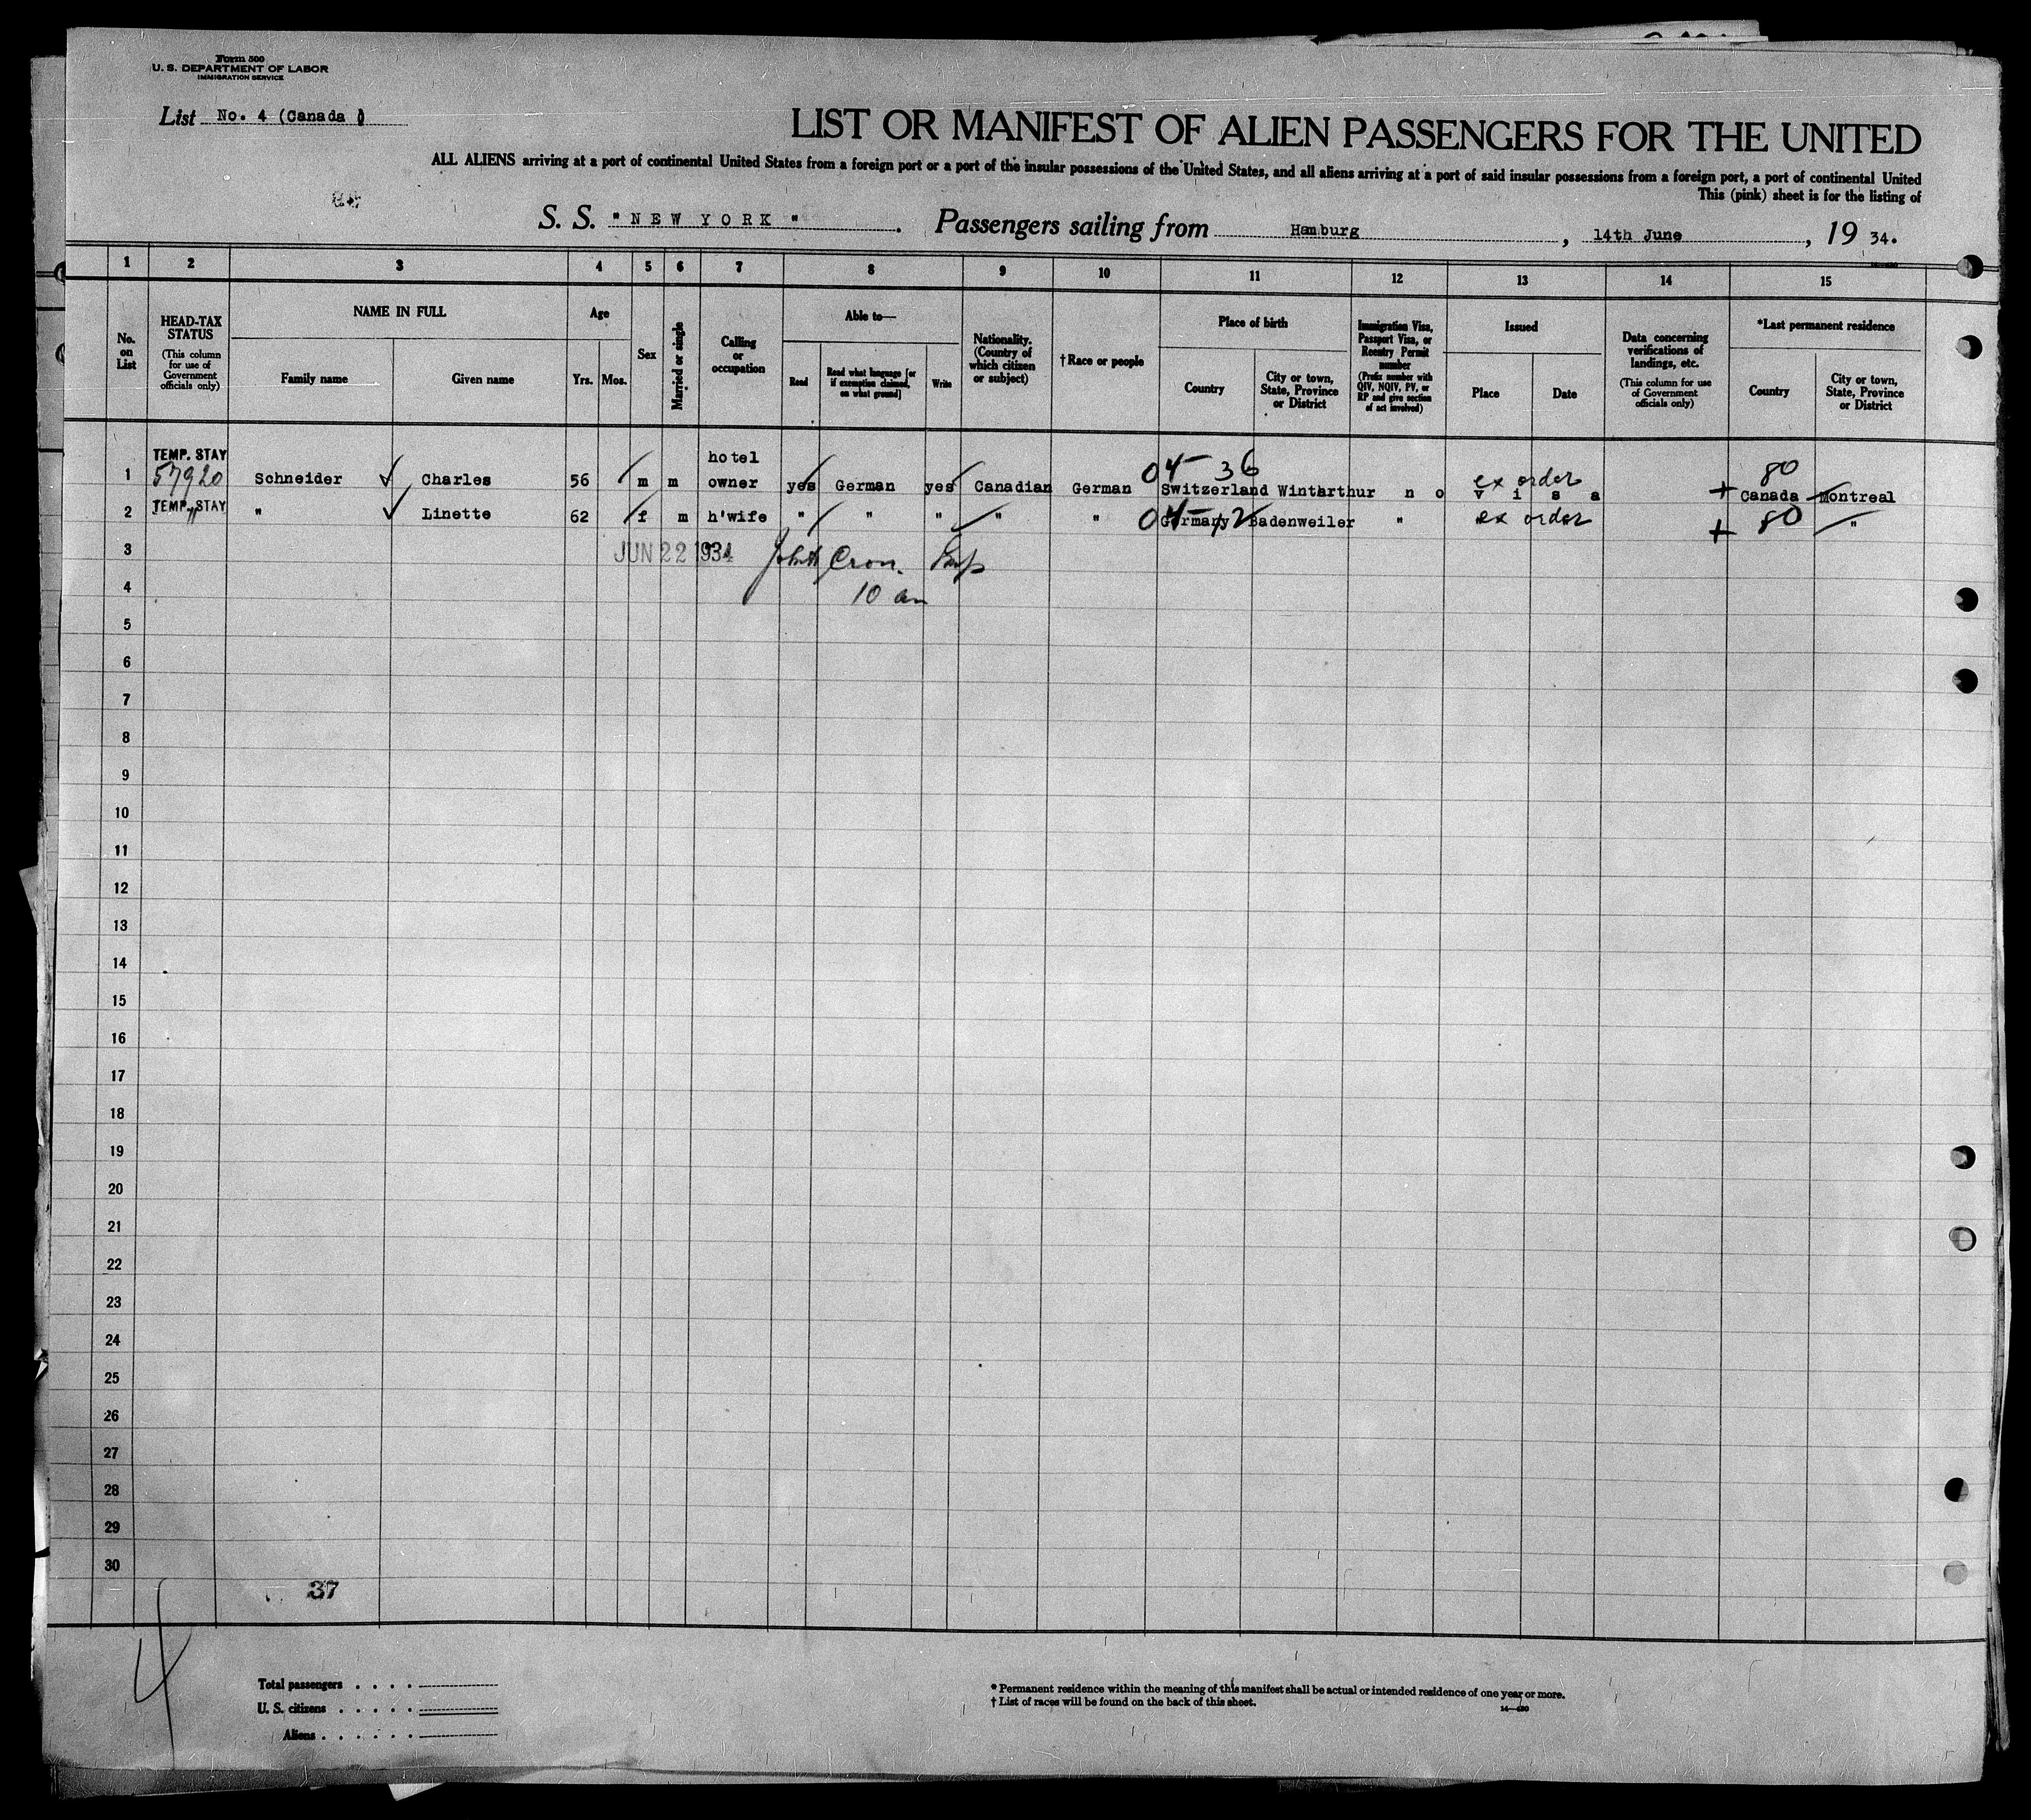 Form 500
U. S. DEPARTMENT OF LABOR
IMMIGRATION SERVICE
List No. 4 (Canada )
LIST OR MANIFEST OF ALIEN PASSENGERS FOR THE UNITED
ALL ALIENS arriving at a port of continental United States from a foreign port or a port of the insular possessions of the United States, and all aliens arriving at a port of said insular possessions from a foreign port, a port of continental United
This (pink) sheet is for the listing of
S. S. " N E W Y O R K " . Passengers sailing from Hamburg , 14th June , 19 34.
1 2 3 4 5 6 7 8 9 10 11 12 13 14 15
No. on List
HEAD-TAX STATUS
(This column for use of Government officials only)
NAME IN FULL
Family name
Given name
Age
Yrs. Mos.
Sex
Married or single
Calling or occupation
Able to—
Read
Read what language [or if exemption claimed, on what ground]
Write
Nationality. (Country of which citizen or subject)
†Race or people
Place of birth
Country
City or town, State, Province or District
Immigration Visa, Passport Visa, or Reentry Permit number
(Prefix number with QIV, NQIV, PV, or RP and give section of act involved)
Issued
Place
Date
Data concerning verifications of landings, etc.
(This column for use of Government officials only)
*Last permanent residence
Country
City or town, State, Province or District
TEMP. STAY hotel 04 36 80
1 57920 Schneider Charles 56 m m owner yes German yes Canadian German Switzerland Wintarthur n o v i s a ex order + Canada Montreal
TEMP. STAY
2 " " Linette 62 f m h'wife " " " " " 04 Germany 12 Badenweiler " ex order + 80 "
3 JUN 22 1934 Cron.
4 10 am
5
6
7
8
9
10
11
12
13
14
15
16
17
18
19
20
21
22
23
24
25
26
27
28
29
30
37
4
Total passengers . . . .
U. S. citizens . . . . .
Aliens . . . . . .
* Permanent residence within the meaning of this manifest shall be actual or intended residence of one year or more.
† List of races will be found on the back of this sheet.
14—430